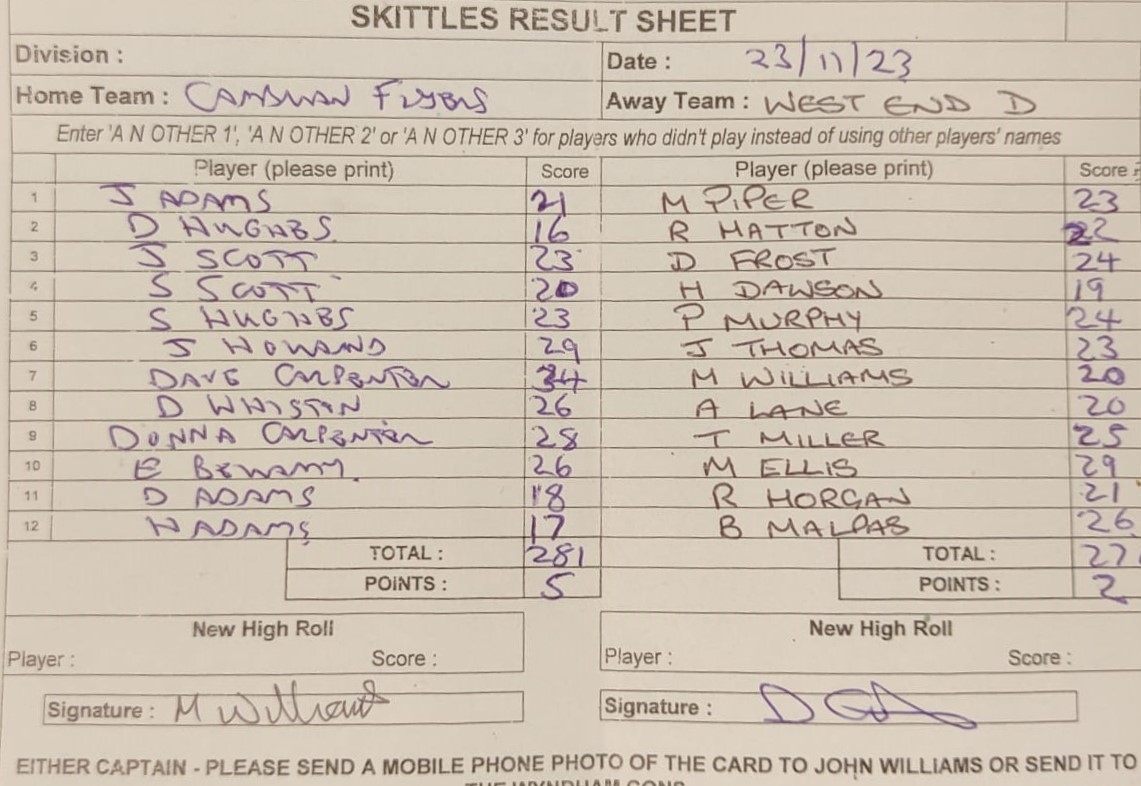 SKITTLES RESULT SHEET
Division : Date : 23/11/23
Home Team : CAMBRIAN FLYERS Away Team : WEST END D
Enter 'A N OTHER 1', 'A N OTHER 2' or 'A N OTHER 3' for players who didn't play instead of using other players' names
Player (please print) Score Player (please print) Score
1 J ADAMS 21 M PIPER 23
2 D HUGHES 16 R HATTON 22
3 J SCOTT 23 D FROST 24
4 S SCOTT 20 H DAWSON 19
5 S HUGHES 23 P MURPHY 24
6 J HOWARD 29 J THOMAS 23
7 DAVE CARPENTER 34 M WILLIAMS 20
8 D WHISTON 26 A LANE 20
9 DONNA CARPENTER 28 T MILLER 25
10 E 26 M ELLIS 29
11 D ADAMS 18 R HORGAN 21
12 N ADAMS 17 B MALPAS 26
TOTAL : 281 TOTAL : 27
POINTS : 5 POINTS : 2
New High Roll New High Roll
Player : Score : Player : Score :
Signature : M Signature : D
EITHER CAPTAIN - PLEASE SEND A MOBILE PHONE PHOTO OF THE CARD TO JOHN WILLIAMS OR SEND IT TO
THE WYNDHAM CONS